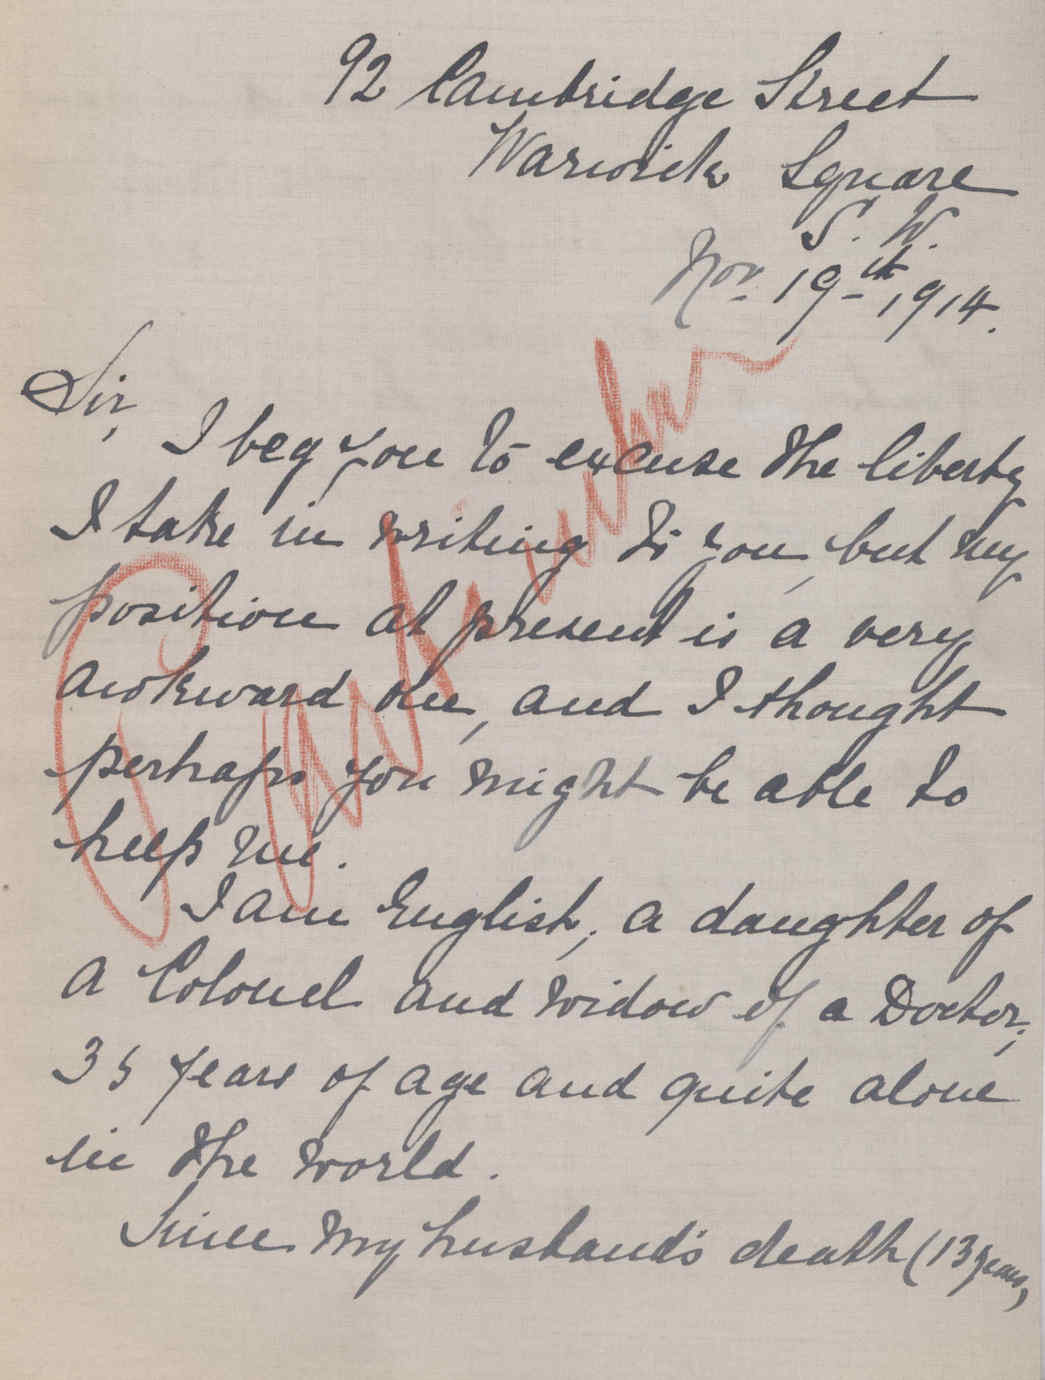 92 Cambridge Street
Warwick Square
S. W.
Nov. 19th 1914.
Sir,
I beg you to excuse the liberty
I take in writing to you, but my
position at present is a very
awkward one, and I thought
perhaps you might be able to
help me.
I am English, a daughter of
a Colonel and widow of a Doctor;
35 years of age and quite alone
in the world.
Since my husband's death (13 years,